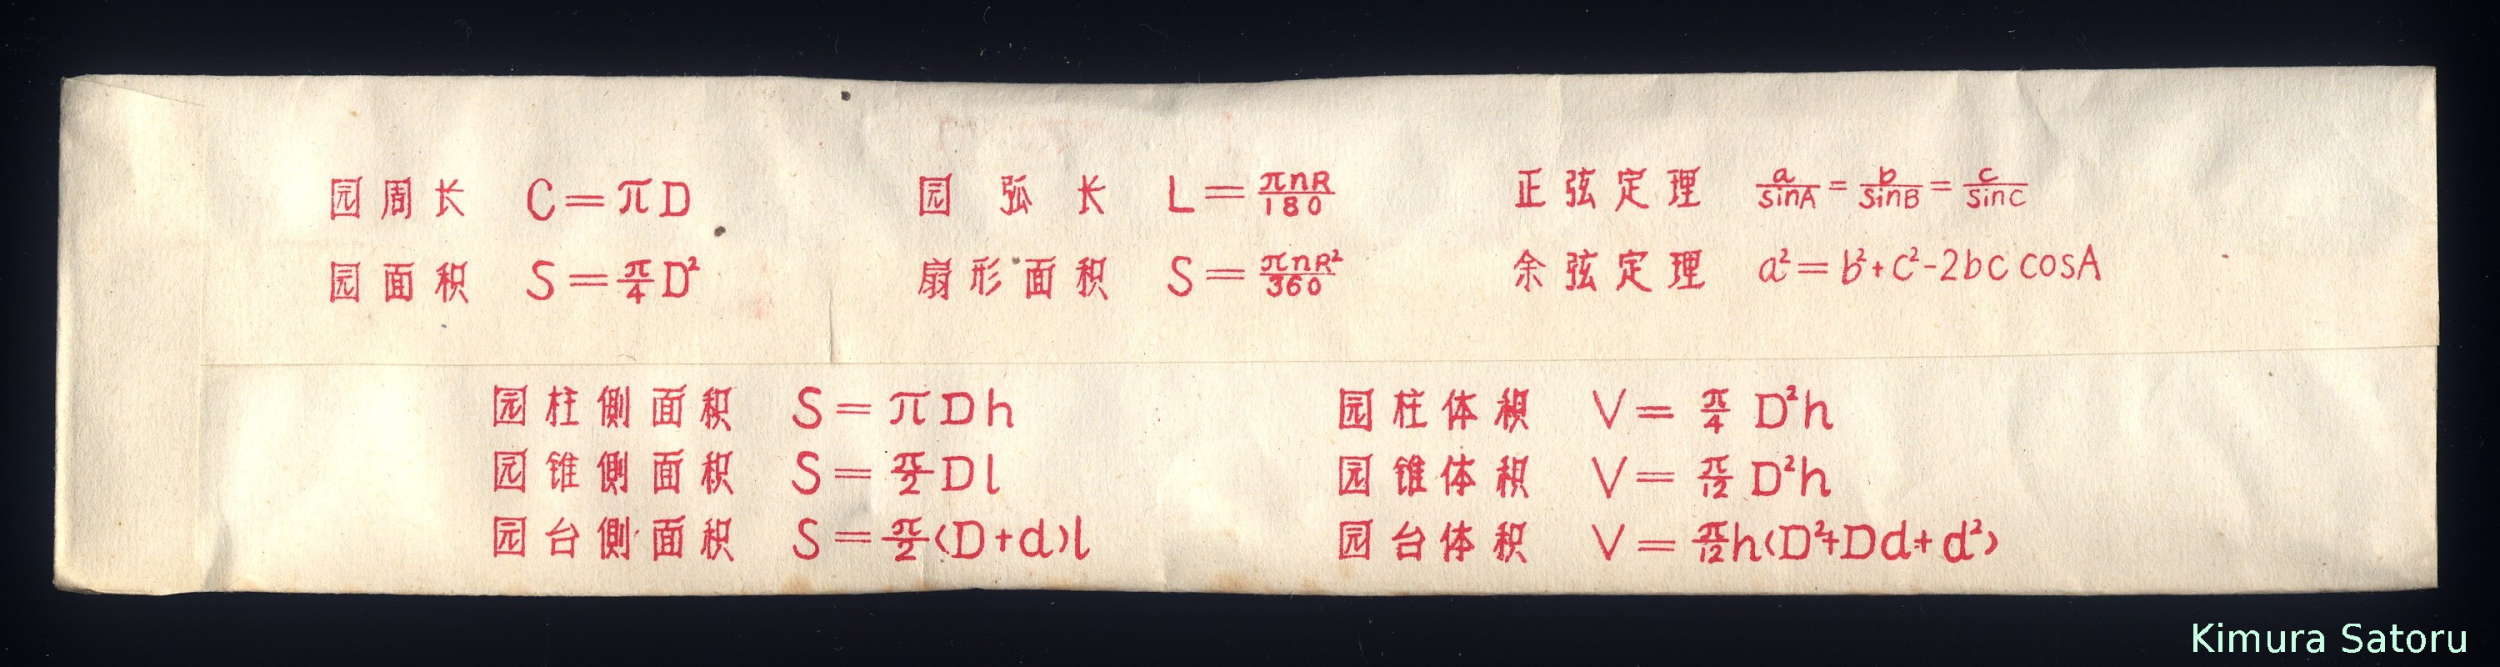 园周长 C=πD 园弧长 L=πnR/180 正弦定理 a/sinA=b/sinB=c/sinC
园面积 S=π/4D² 扇形面积 S=πnR²/360 余弦定理 a²=b²+c²-2bc cosA
园柱側面积 S=πDh 园柱体积 V=π/4 D²h
园锥側面积 S=π/2Dl 园锥体积 V=π/12 D²h
园台側面积 S=π/2(D+d)l 园台体积 V=π/12h(D²+Dd+d²)
Kimura Satoru